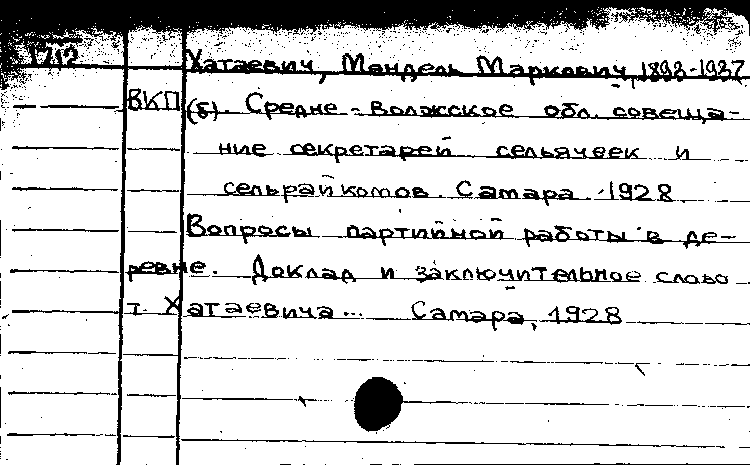 1712 Хатаевич, Мендель Маркович, 1893-1937
ВКП(б). Средне-Волжское обл. совеща-
ние секретарей сельячеек и
сельрайкомов. Самара. 1928
Вопросы партийной работы в де-
ревне. Доклад и заключительное слово
т. Хатаевича... Самара, 1928